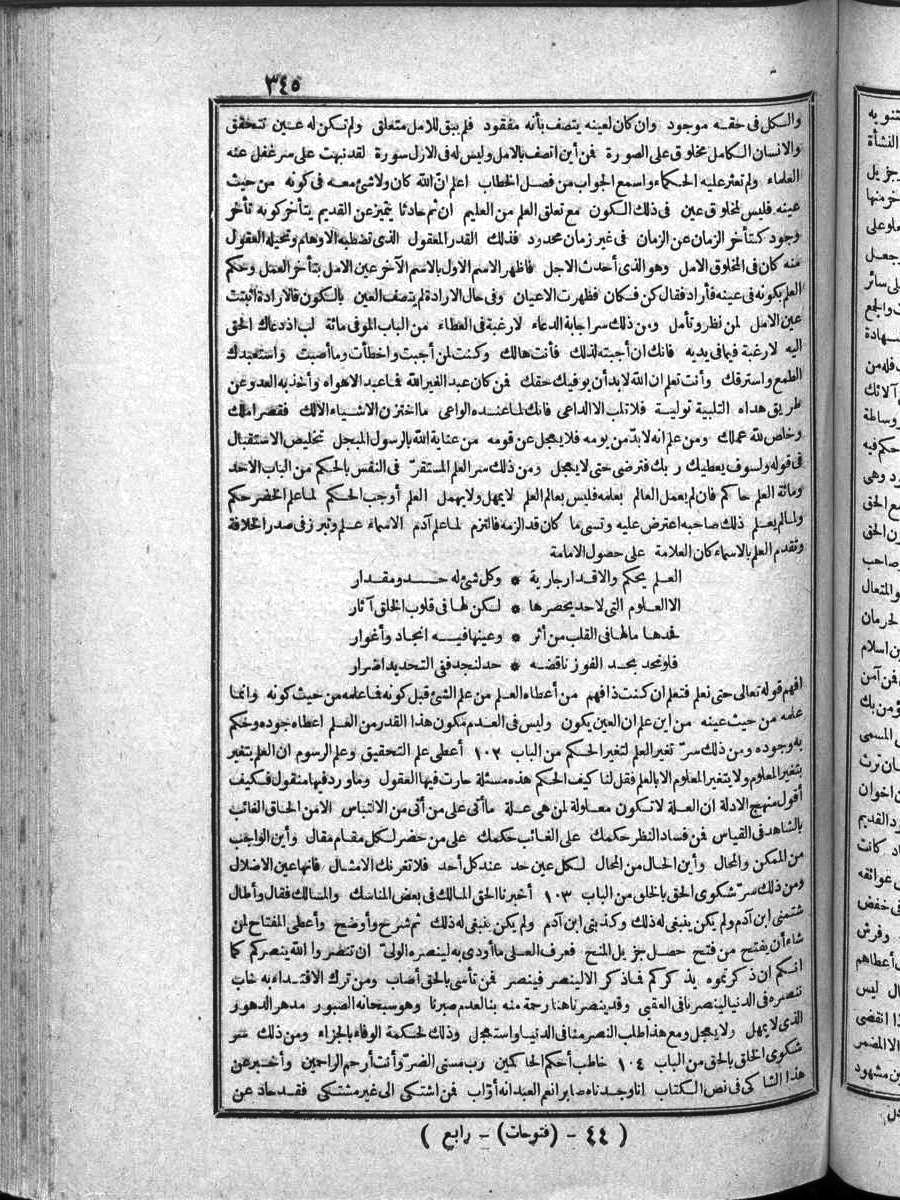 ٣٤٥
والكل في حقه موجود وان كان لعينه يتصف بأنه مفقود فلم يبق للامل متعلق ولم تكن له عين تتحقق
والانسان الكامل مخلوق على الصورة فمن أين اتصف بالامل وليس له في الازل سورة لقد نبهت على سر غفل عنه
العلماء ولم تعثر عليه الحكماء واسمع الجواب من فصل الخطاب اعلم انّ الله كان ولا شئ معه في كونه من حيث
عينه فليس لمخلوق عين في ذلك الكون مع تعلق العلم من العليم ان ثم حادثا يتميز عن القديم يتأخر كونه تأخر
وجود كتأخر الزمان عن الزمان في غير زمان محدود فذلك القدر المعقول الذي تضبطه الاوهام وتحيله العقول
منه كان في المخلوق الامل وهو الذي أحدث الاجل فاظهر الاسم الاول بالاسم الآخر عين الامل بتأخر العمل وحكم
العلم بكونه في عينه فأراد فقال كن فكان فظهرت الاعيان وفي حال الارادة لم يتصف العين بالكون فالارادة اثبتت
عين الامل لمن نظر وتأمل ومن ذلك سر اجابة الدعاء لا رغبة في العطاء من الباب الموفى مائة لب اذ دعاك الحق
اليه لا رغبة فيما في يديه فانك ان أجبته لذلك فأنت هالك وكنت لمن أجبت واخطأت وما أصبت واستعبدك
الطمع واسترقك وأنت تعلم ان الله لا بد أن يوفيك حقك فمن كان عبد الغير الله فما عبد الا هواه وأخذ به العدو عن
طريق هداه التلبية تولية فلا تلب الا الداعي فانك لما عنده الواعي ما اختزن الاشياء الا لك فقصر املك
وخاص لله عملك ومن علم انه لا بدّ من يومه فلا يعجل عن قومه من عناية الله بالرسول المبجل تخليص الاستقبال
في قوله ولسوف يعطيك ربك فترضى حتى لا يعجل ومن ذلك سر العلم المستقرّ في النفس بالحكم من الباب الاحد
ومائة العلم حاكم فان لم يعمل العالم بعلمه فليس بعالم العلم لا يمهل ولا يهمل العلم أوجب الحكم لما علم الخضر حكم
ولما لم يعلم ذلك صاحبه اعترض عليه ونسى ما كان قد الزمه فالتزم لما علم آدم الاسماء علم وتبرز في صدر الخلافة
وتقدم العلم بالاسماء كان العلامة على حصول الامامة
العلم يحكم والاقدار جارية * وكل شئ له حد ومقدار
الا العلوم التي لا حد يحصرها * لكن لها في قلوب الخلق آثار
فحدها ما لها في القلب من أثر * وعينها فيه انجاد وأغوار
فلو تحد بحد الفوز ناقضه * حد لنجد ففي التحديد اضرار
افهم قوله تعالى حتى نعلم فتعلم ان كنت ذا فهم من أعطاه العلم من علم الشئ قبل كونه فما علمه من حيث كونه وانما
علمه من حيث عينه من اين علم ان العين يكون وليس في العدم مكون هذا القدر من العلم اعطاه جوده وحكم
به وجوده ومن ذلك سرّ تغير العلم لتغير الحكم من الباب ١٠٢ أعطى علم التحقيق وعلم الرسوم ان العلم يتغير
بتغير المعلوم ولا يتغير المعلوم الا بالعلم فقل لنا كيف الحكم هذه مسئلة حارت فيها العقول وما ورد فيها منقول فكيف
أقول منهج الادلة ان العلة لا تكون معلولة لمن هي علة ما أتى على من أتى من الالتباس الا من الحاق الغائب
بالشاهد في القياس فمن فساد النظر حكمك على الغائب حكمك على من حضر لكل مقام مقال وأين الواجب
من الممكن والمحال وأين الحال من المحال لكل عين حد عند كل أحد فلا تغرنك الامثال فانها عين الاضلال
ومن ذلك سرّ شكوى الحق بالخلق من الباب ١٠٣ أخبرنا الحق المالك في بعض المناسك والمسالك فقال وأطال
شتمني ابن آدم ولم يكن ينبغي له ذلك وكذبني ابن آدم ولم يكن ينبغي له ذلك ثم شرح وأوضح وأعطى المفتاح لمن
شاء أن يفتح من فتح حصل جزيل المنح فعرف العلى ما أودى به لينصره الولىّ ان تنصروا الله ينصركم كما
انكم ان ذكرتموه يذكركم فما ذكر الا لينصر فينصر فمن تأسى بالحق أصاب ومن ترك الاقتداء به خاب
تنصره في الدنيا لينصرنا في العقبى وقد ينصرنا هنا رحمة منه بنا لعدم صبرنا وهو سبحانه الصبور مدهر الدهور
الذي لا يمهل ولا يعجل ومع هذا اطلب النصر منا في الدنيا واستعجل وذلك لحكمة الوفاء بالجزاء ومن ذلك سر
شكوى الخلق بالحق من الباب ١٠٤ خاطب أحكم الحاكمين رب مسني الضرّ وأنت أرحم الراحمين وأخبر عن
هذا الشاكي في نص الكتاب انا وجدناه صابرا نعم العبد انه أوّاب فمن اشتكى الى غير مشتكى فقد حاد عن
( ٤٤ - (فتوحات) - رابع )